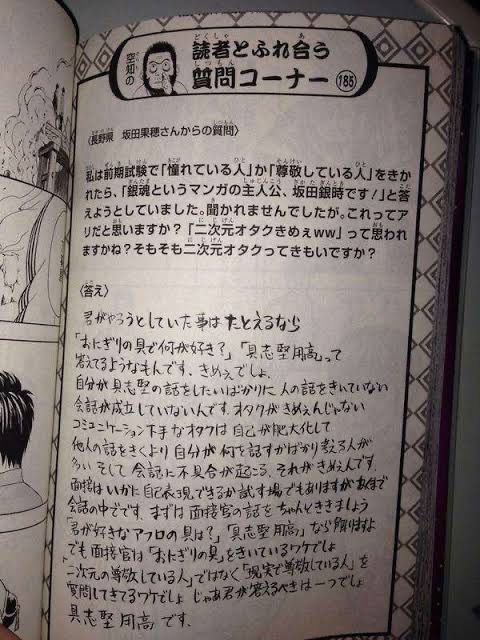 空知の
読者とふれ合う
質問コーナー
185
〈長野県　坂田果穂さんからの質問〉
私は前期試験で「憧れている人」か「尊敬している人」をきか
れたら、「銀魂というマンガの主人公、坂田銀時です!」と答
えようとしていました。聞かれませんでしたが。これってア
リだと思いますか?「二次元オタクきめぇww」って思われ
ますかね?そもそも二次元オタクってきもいですか?
〈答え〉
君がやろうとしていた事は たとえるなら
「おにぎりの具で何が好き?」「具志堅用高」って
答えてるようなもんです、きめぇでしょ。
自分が具志堅の話をしたいばかりに 人の話をきいていない
会話が成立していないんです。オタクがきめぇんじゃない
コミュニケーション下手なオタクは自己が肥大化して
他人の話をきくより自分が何を話すかばかり考える人が
多い そして会話に不具合が起こる、それがきめぇんです。
面接はいかに自己表現できるか試す場でもありますがあくまで
会話の中でです。まずは面接官の話をちゃんとききましょう
「君が好きなアフロの具は?」「具志堅用高」なら解りますよ
でも面接官は「おにぎりの具」をきいているワケでしょ
「二次元の尊敬している人」ではなく「現実で尊敬している人」を
質問してきてるワケでしょ じゃあ君が答えるべきは一つでしょ
具志堅用高です。